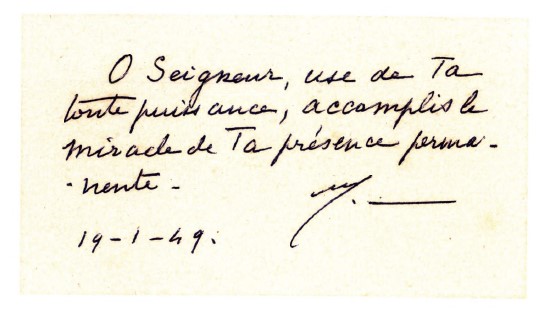 O Seigneur, use de Ta
toute puissance, accomplis le
miracle de Ta présence perma-
-nente-
19-1-49.